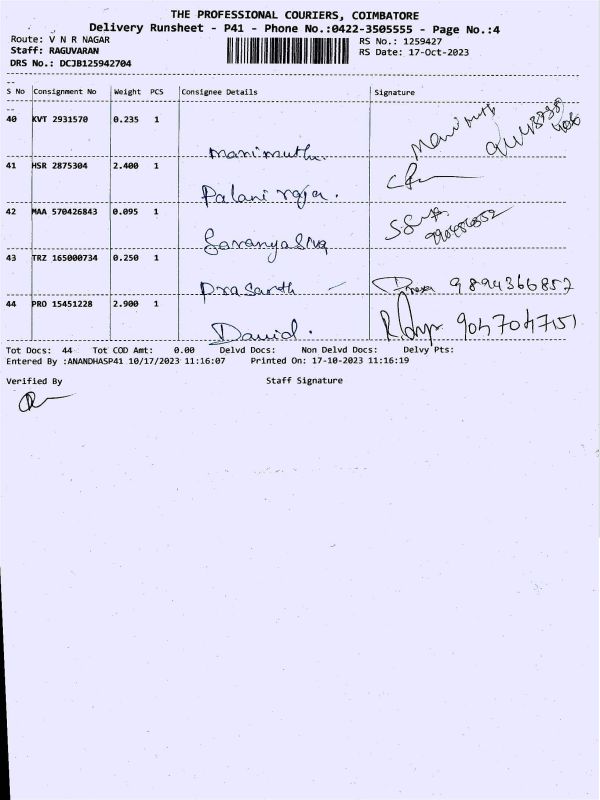 THE PROFESSIONAL COURIERS, COIMBATORE
Delivery Runsheet - P41 - Phone No.:0422-3505555 - Page No.:4
Route: V N R NAGAR RS No.: 1259427
Staff: RAGUVARAN RS Date: 17-Oct-2023
DRS No.: DCJB125942704
S No Consignment No Weight PCS Consignee Details Signature
40 KVT 2931570 0.235 1
manimuthu
41 HSR 2875304 2.400 1
Palani raja.
42 MAA 570426843 0.095 1
Saranya Siva
43 TRZ 165000734 0.250 1
Prasanth 9894366857
44 PRO 15451228 2.900 1
David. 9047047151
Tot Docs: 44 Tot COD Amt: 0.00 Delvd Docs: Non Delvd Docs: Delvy Pts:
Entered By :ANANDHASP41 10/17/2023 11:16:07 Printed On: 17-10-2023 11:16:19
Verified By Staff Signature